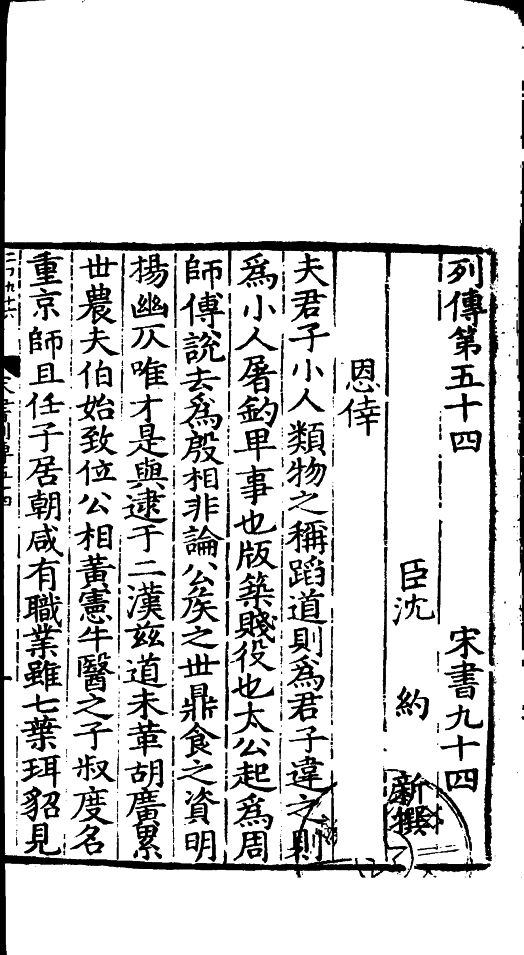 列傳第五十四 宋書九十四
臣沈 約 新撰
恩倖
夫君子小人類物之稱蹈道則爲君子違之則
爲小人屠釣卑事也版築賤役也太公起爲周
師傅說去爲殷相非論公侯之世鼎食之資明
楊幽仄唯才是與逮于二漢兹道未革胡廣累
世農夫伯始致位公相黃憲牛醫之子叔度名
重京師且任子居朝咸有職業雖七葉珥貂見